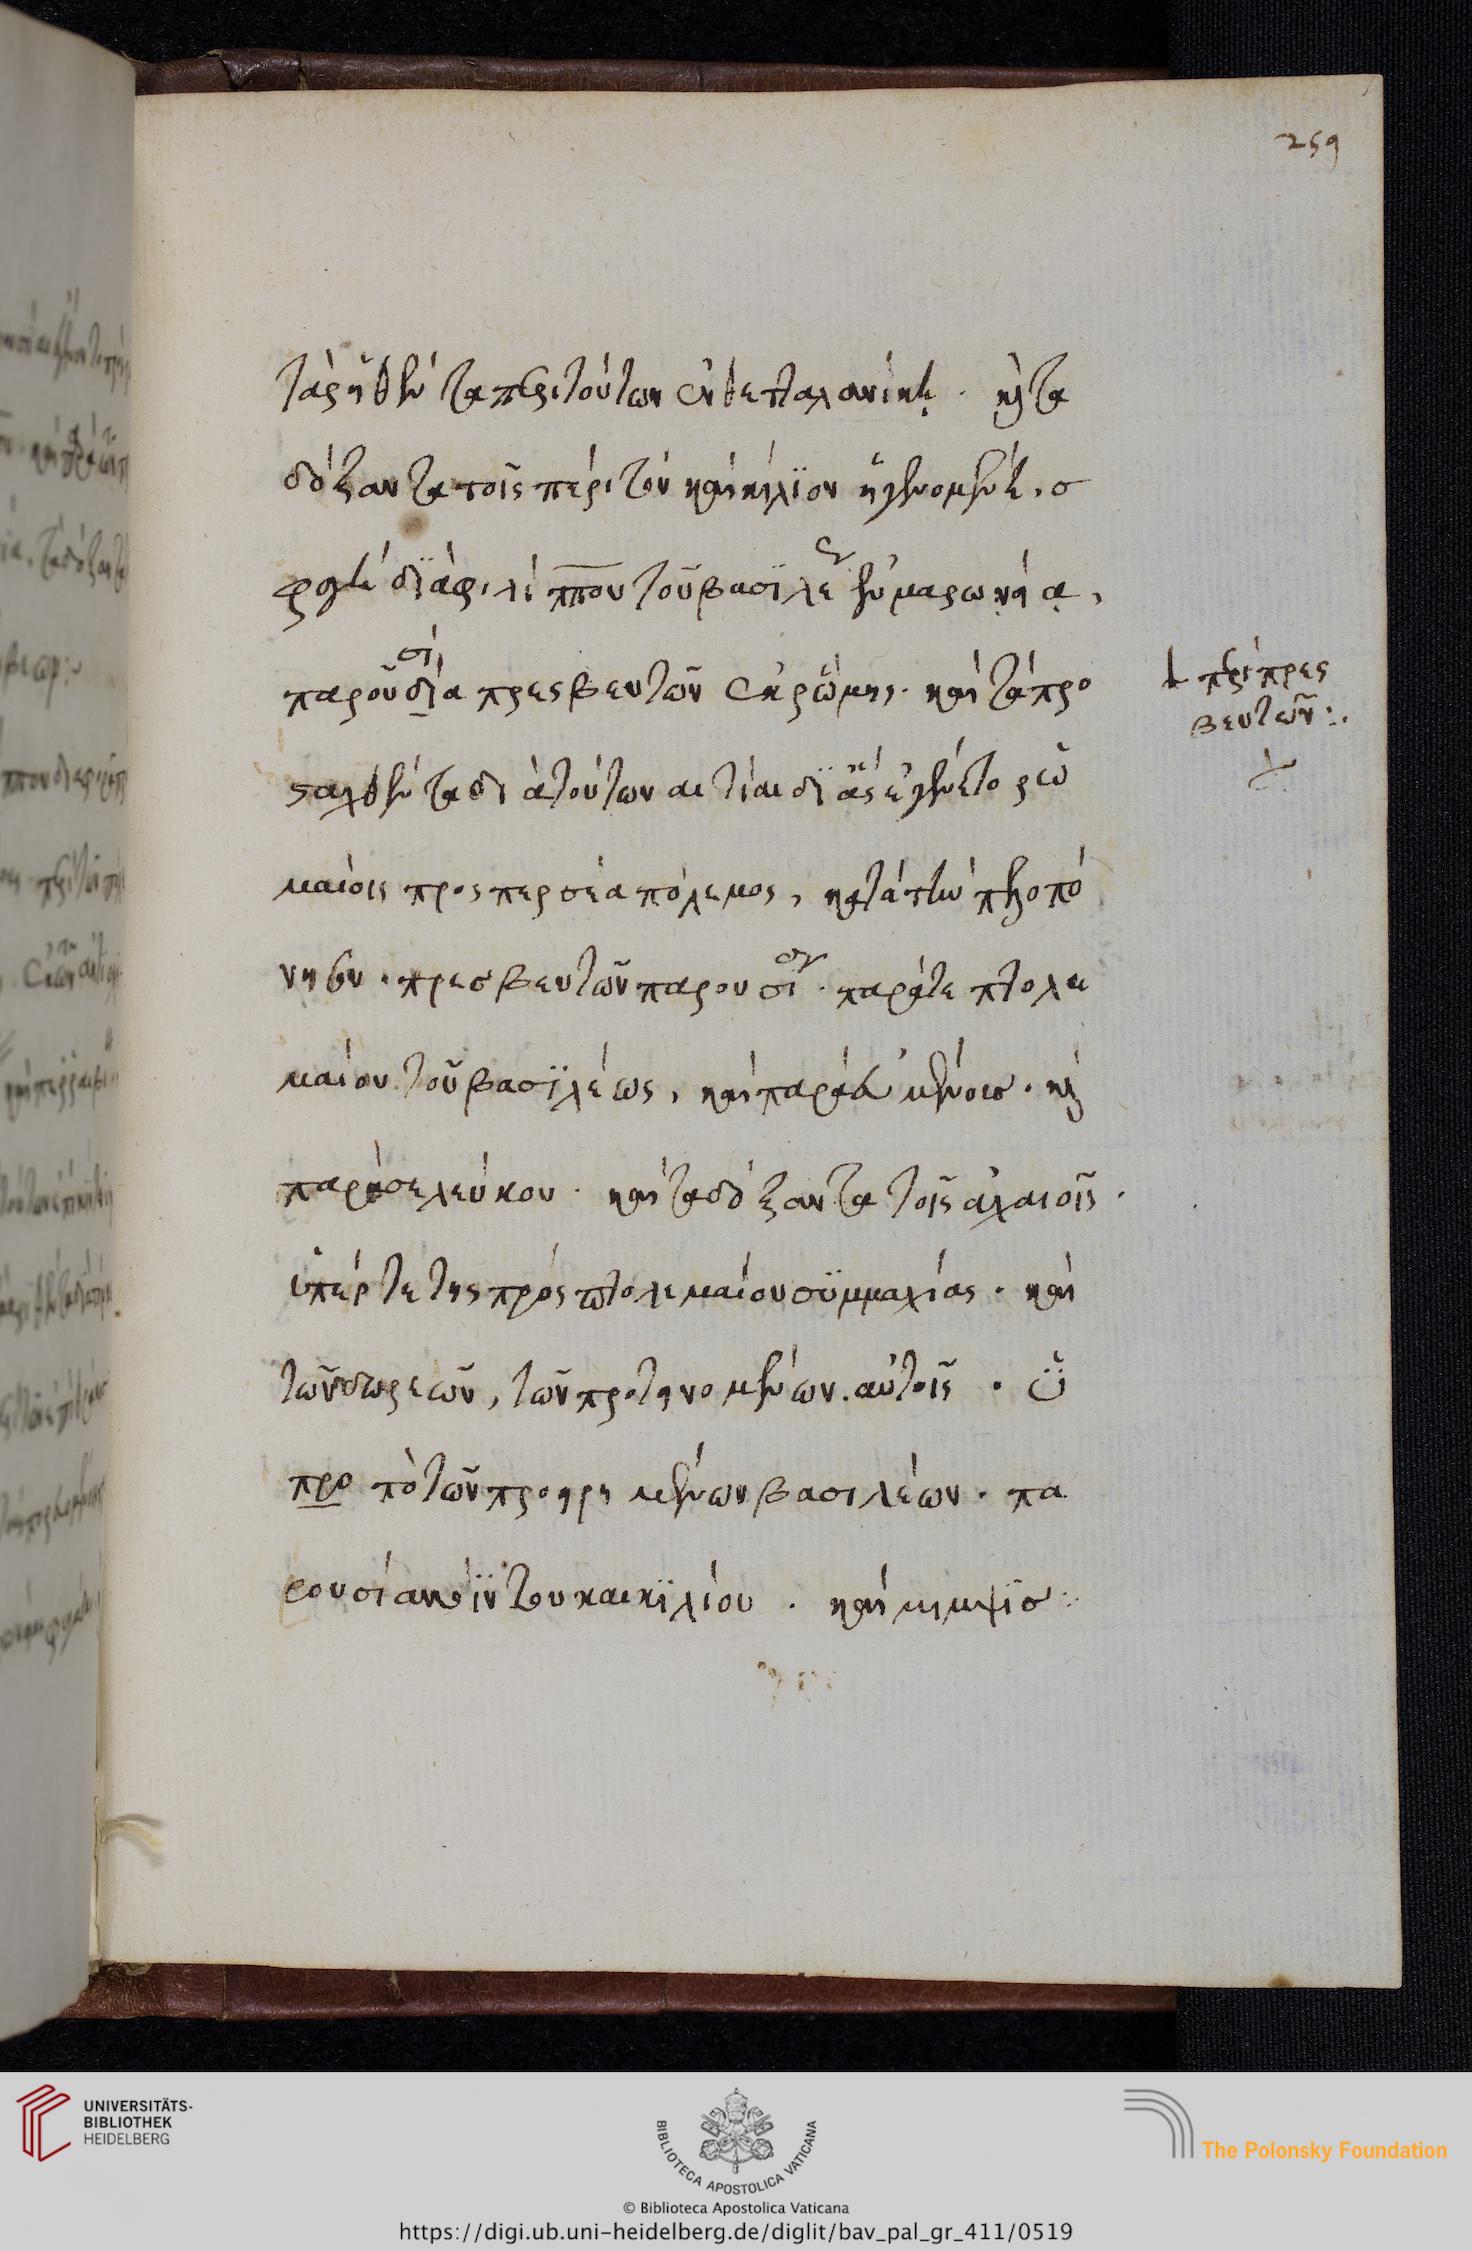 259
τὰ ῥηθέντα περὶ τούτων ἐν θετταλονίκη · καὶ τὰ
δόξαντα τοῖς περὶ τὸν καικίλϊον ἡ γενομένη, σ
φαγὴ διὰ φιλίππου τοῦ βασϊλέως ἐν μαρωνεία,
παρουσία πρεσβευτῶν ἐκ ῥώμης · καὶ τὰ προ
σταχθέντα διὰ τούτων αἰτίαι δϊ ἃς ἐγένετο ῥω
μαίοις προς περσέα πόλεμος, κατὰ τὴν πελοπό
νησον · πρεσβευτῶν παρουσία · παρά τε πτολε
μαίου τοῦ βασϊλέως, καὶ παρὰ εὐμένους · καὶ
παρὰ σελεύκου · καὶ τὰ δόξαντα τοῖς ἀχαιοῖς ·
ὑπέρ τε της πρὸς πτολεμαίον συμμαχίας · καὶ
τῶν δωρεῶν, τῶν προτεινομένων αὐτοῖς · ὑ
πρὸ πὸ τῶν προειρημένων βασιλέων · πα
ρουσία του καικϊλίου · καὶ
περὶ πρεσ
βευτῶν :
UNIVERSITÄTS-
BIBLIOTHEK
HEIDELBERG
BIBLIOTECA APOSTOLICA VATICANA
© Biblioteca Apostolica Vaticana
The Polonsky Foundation
https://digi.ub.uni-heidelberg.de/diglit/bav_pal_gr_411/0519